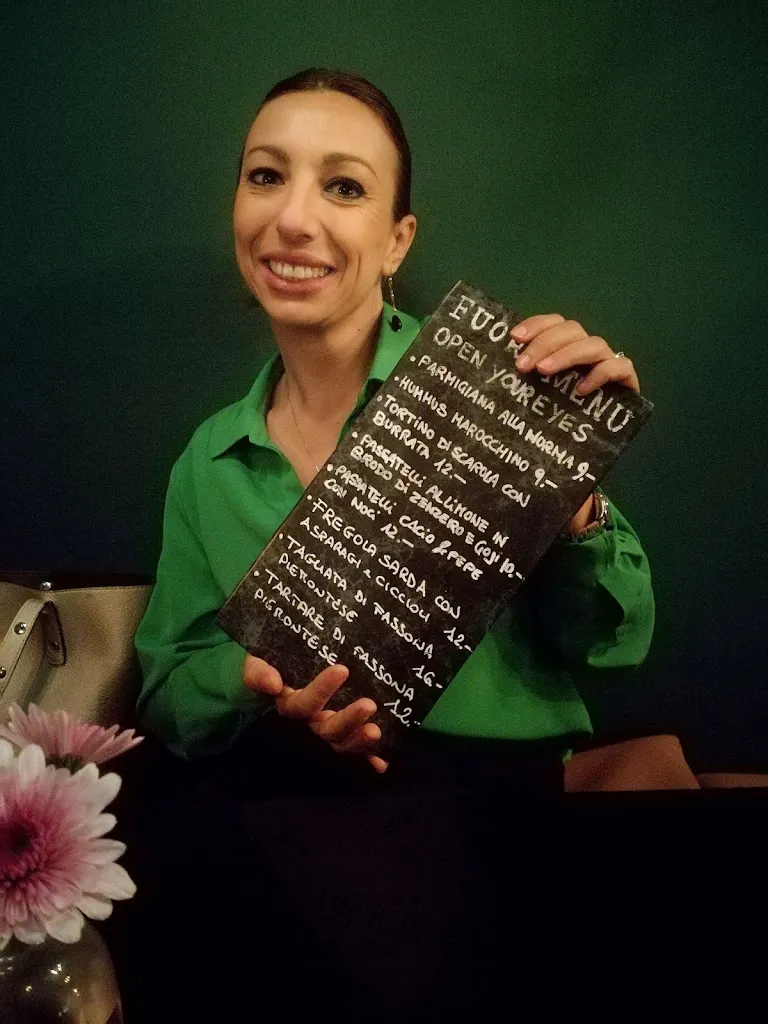 FUORI MENU
OPEN YOUR EYES
• PARMIGIANA ALLA NORMA 9.-
• HUMMUS MAROCCHINO 9.-
• TORTINO DI SCAROLA CON
BURRATA 12.-
• PASSATELLI AL LIMONE IN
BRODO DI ZENZERO E GOJI 10.-
• PASSATELLI CACIO & PEPE
CON NOCI 12.-
• FREGOLA SARDA CON
ASPARAGI E CICCIOLI 12.-
• TAGLIATA DI FASSONA
PIEMONTESE 16-
• TARTARE DI FASSONA
PIEMONTESE 12.-